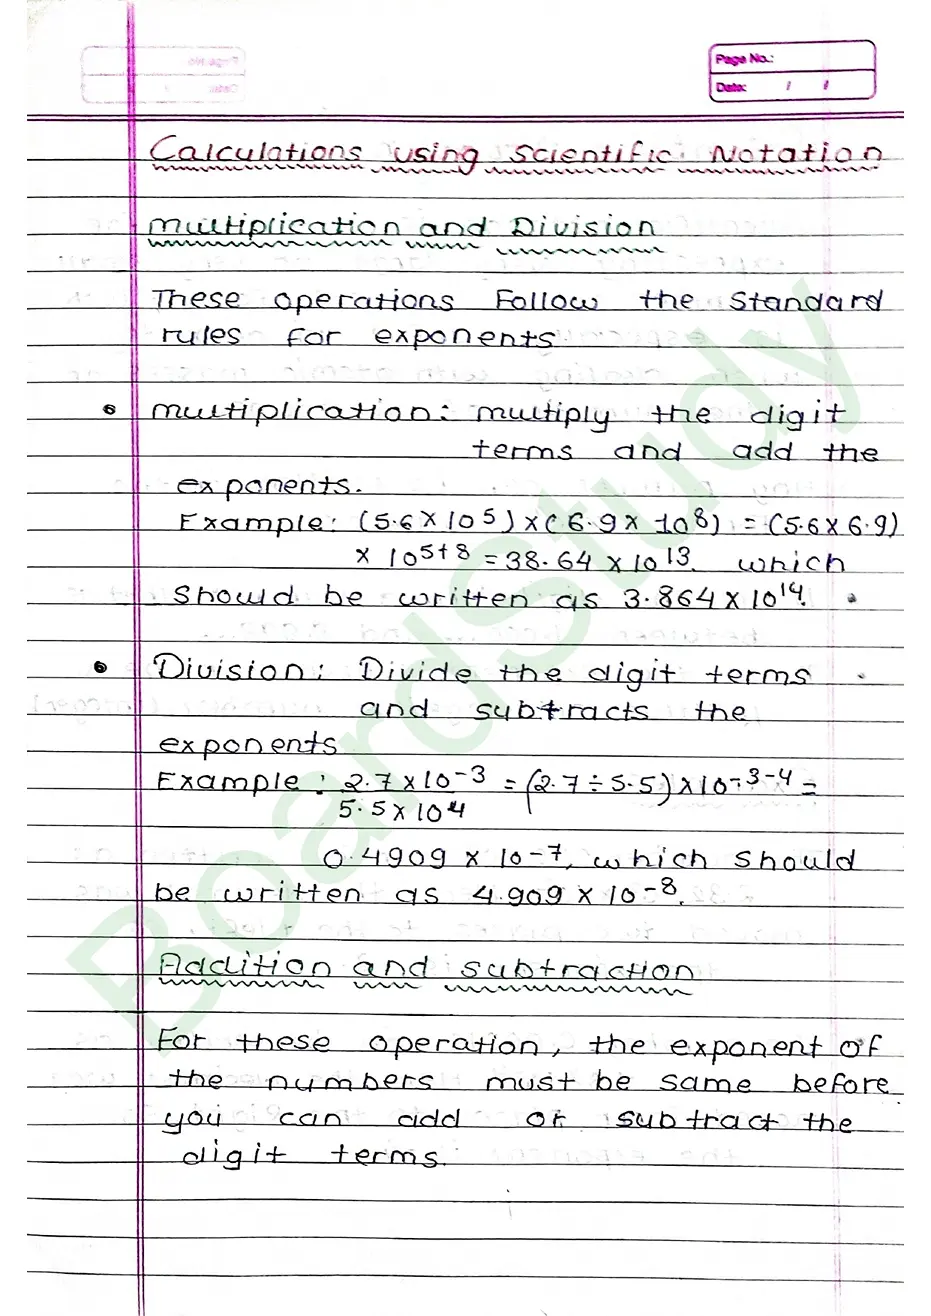 Page No.:
Date: / /
Calculations using Scientific Notation
Multiplication and Division
These operations Follow the Standard
rules for exponents
• multiplication: multiply the digit
terms and add the
exponents.
Example: (5.6 × 10⁵) × (6.9 × 10⁸) = (5.6 × 6.9)
× 10⁵⁺⁸ = 38.64 × 10¹³. which
should be written as 3.864 × 10¹⁴.
• Division: Divide the digit terms
and subtracts the
exponents
Example: 2.7 × 10⁻³ = (2.7 ÷ 5.5) × 10⁻³⁻⁴ =
5.5 × 10⁴
0.4909 × 10⁻⁷, which should
be written as 4.909 × 10⁻⁸.
Addition and subtraction
For these operation, the exponent of
the numbers must be same before
you can add or subtract the
digit terms.
BoardStudy